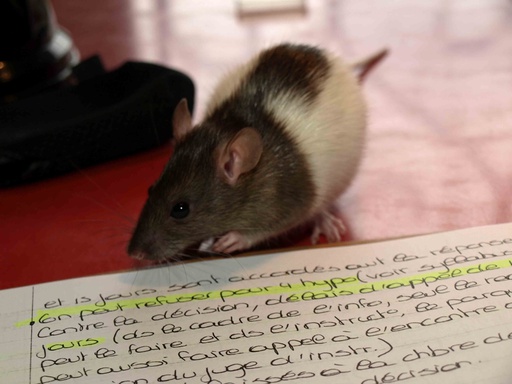 et 15 jours sont accordés aut la réponse
• On peut refuser pour 4 hyp (voir
Contre la décision, délais d'appel de
jours (ds le cadre de l'info, seul le
peut le faire et ds l'instructº, le parq
peut aussi faire appel à l'encontre d
du juge d'instr.)
à la chbre de
décision.